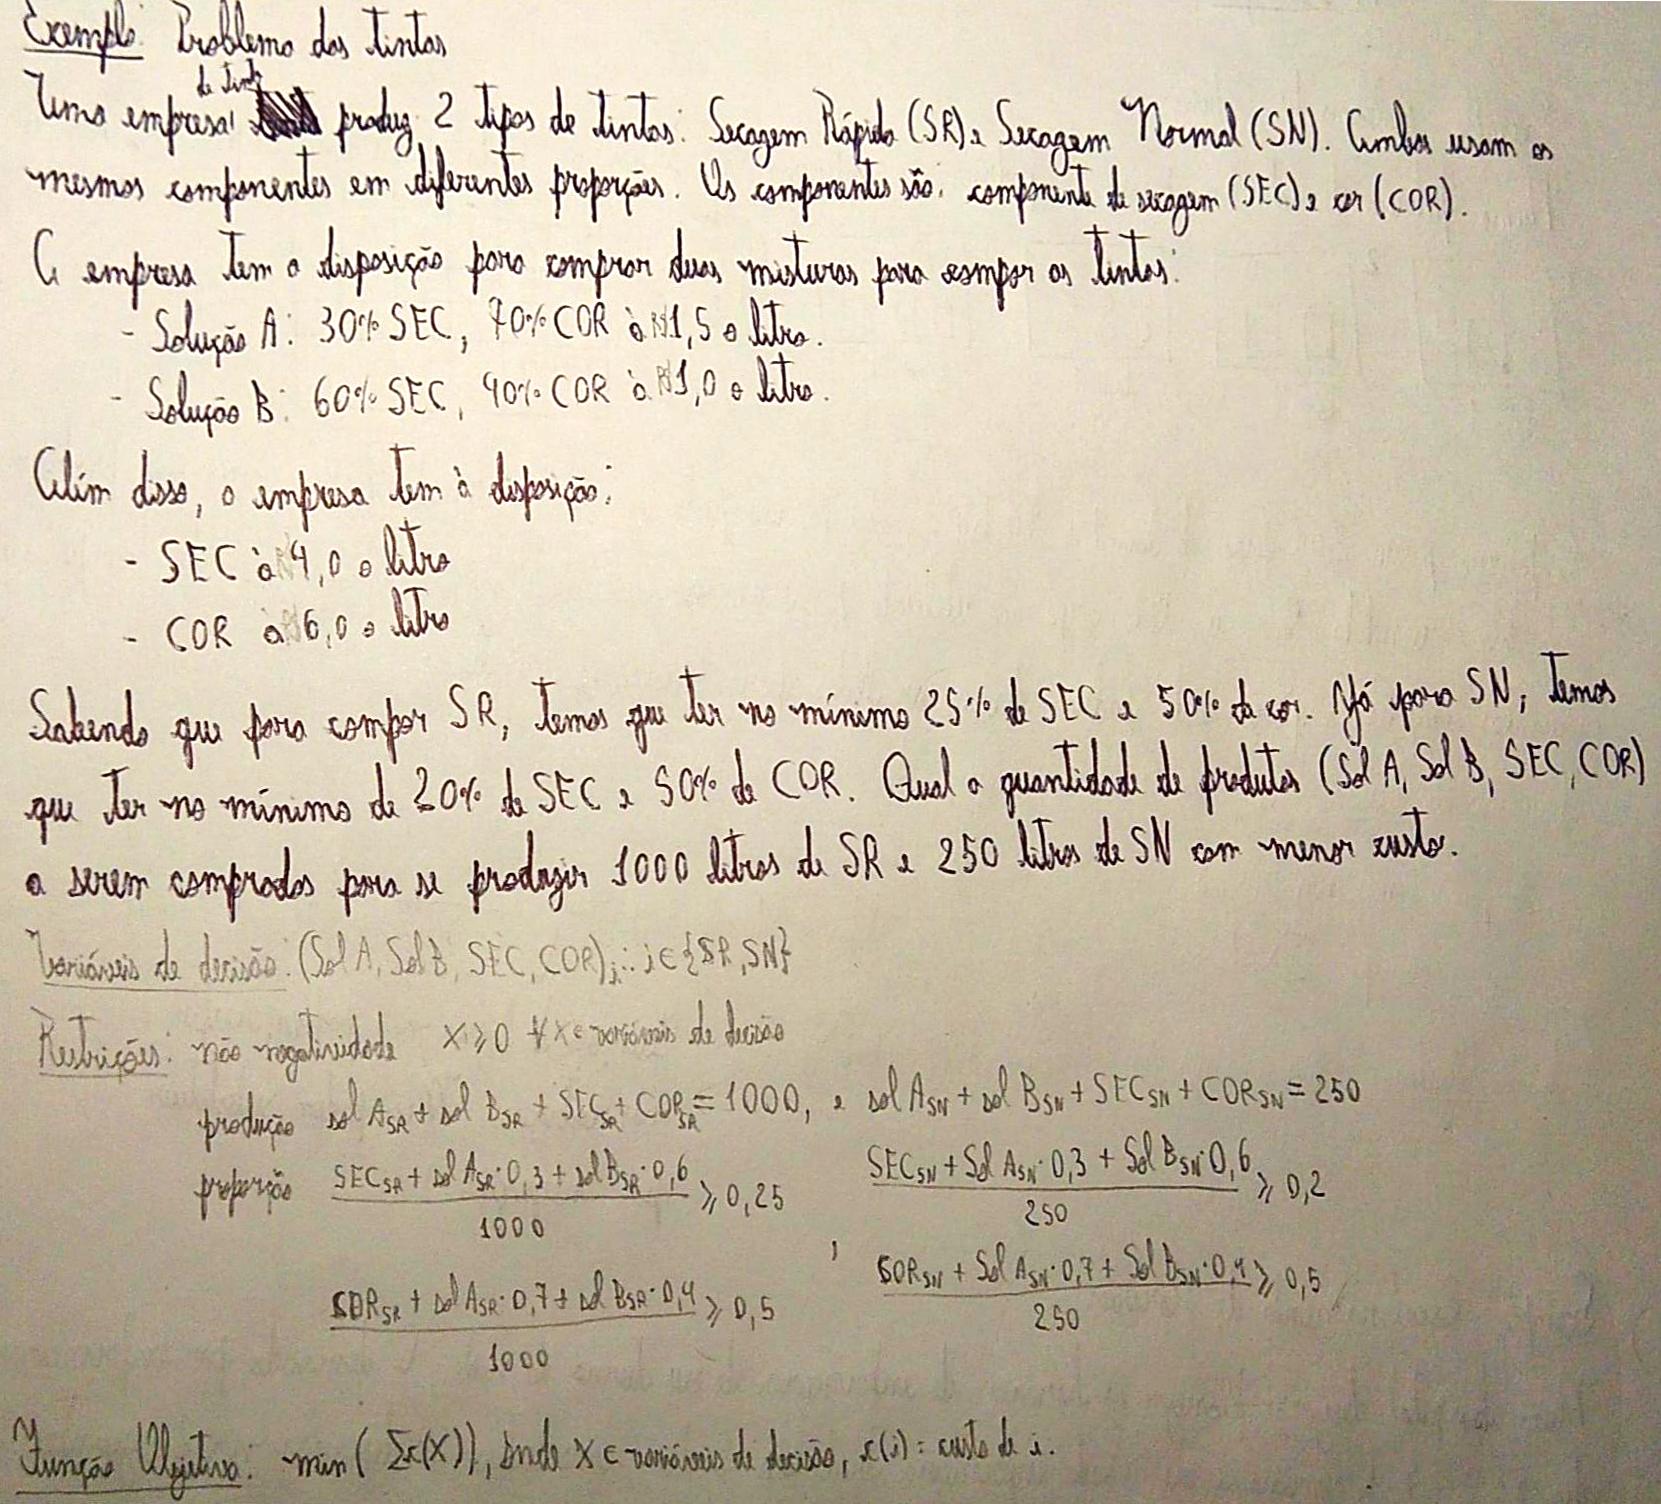 Exemplo: Problema das tintas
Uma empresa de tinta produz 2 tipos de tintas: Secagem Rápida (SR) e Secagem Normal (SN). Ambas usam os
mesmos componentes em diferentes proporções. Os componentes são: componente de secagem (SEC) e cor (COR).
A empresa tem a disposição para comprar duas misturas para compor as tintas:
- Solução A: 30% SEC, 70% COR à R$1,5 o litro.
- Solução B: 60% SEC, 40% COR à R$1,0 o litro.
Além disso, a empresa tem à disposição:
- SEC à R$4,0 o litro
- COR a R$6,0 o litro
Sabendo que para compor SR, temos que ter no mínimo 25% de SEC e 50% de cor. Já para SN, temos
que ter no mínimo de 20% de SEC e 50% de COR. Qual a quantidade de produtos (Sol A, Sol B, SEC, COR)
a serem comprados para se produzir 1000 litros de SR e 250 litros de SN com menor custo.
Variáveis de decisão: (Sol A, Sol B, SEC, COR)i ∴ i ∈ {SR, SN}
Restrições: não negatividade X ≥ 0 ∀ X ∈ variáveis de decisão
produção sol A_SR + sol B_SR + SEC_SR + COR_SR = 1000, e sol A_SN + sol B_SN + SEC_SN + COR_SN = 250
proporção (SEC_SR + sol A_SR · 0,3 + sol B_SR · 0,6)/1000 ≥ 0,25 (SEC_SN + Sol A_SN · 0,3 + Sol B_SN · 0,6)/250 ≥ 0,2
, (COR_SR + sol A_SR · 0,7 + sol B_SR · 0,4)/1000 ≥ 0,5 (COR_SN + Sol A_SN · 0,7 + Sol B_SN · 0,4)/250 ≥ 0,5
Função Objetiva: min (Σc(X)), onde X ∈ variáveis de decisão, c(i): custo de i.